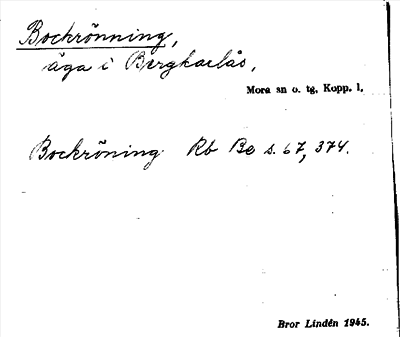 Bockrönning,
äga i Bergkarlås,
Mora sn o. tg. Kopp. l.
Bockröning Rb Be s. 67, 374.
Bror Lindén 1945.